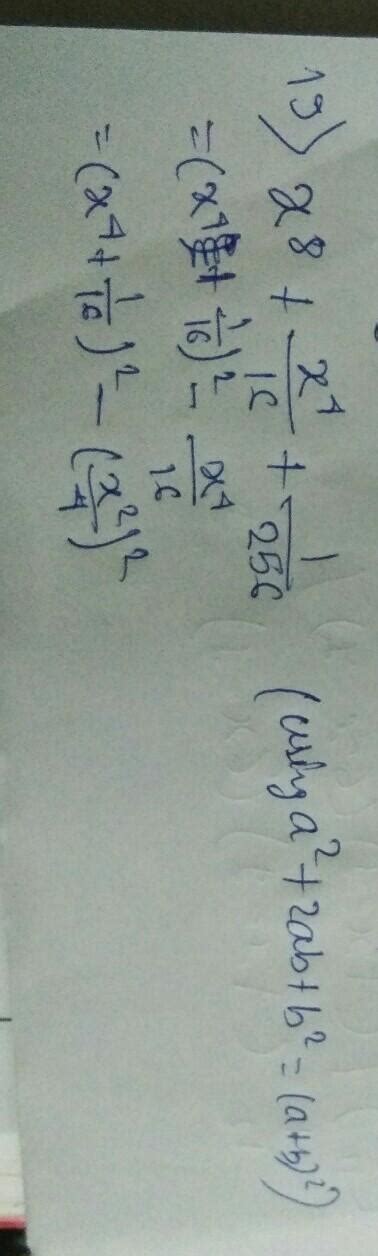 19) x⁸ + x⁴/16 + 1/256 (using a² + 2ab + b² = (a+b)²)
= (x⁴ + 1/16)² - x⁴/16
= (x⁴ + 1/16)² - (x²/4)²